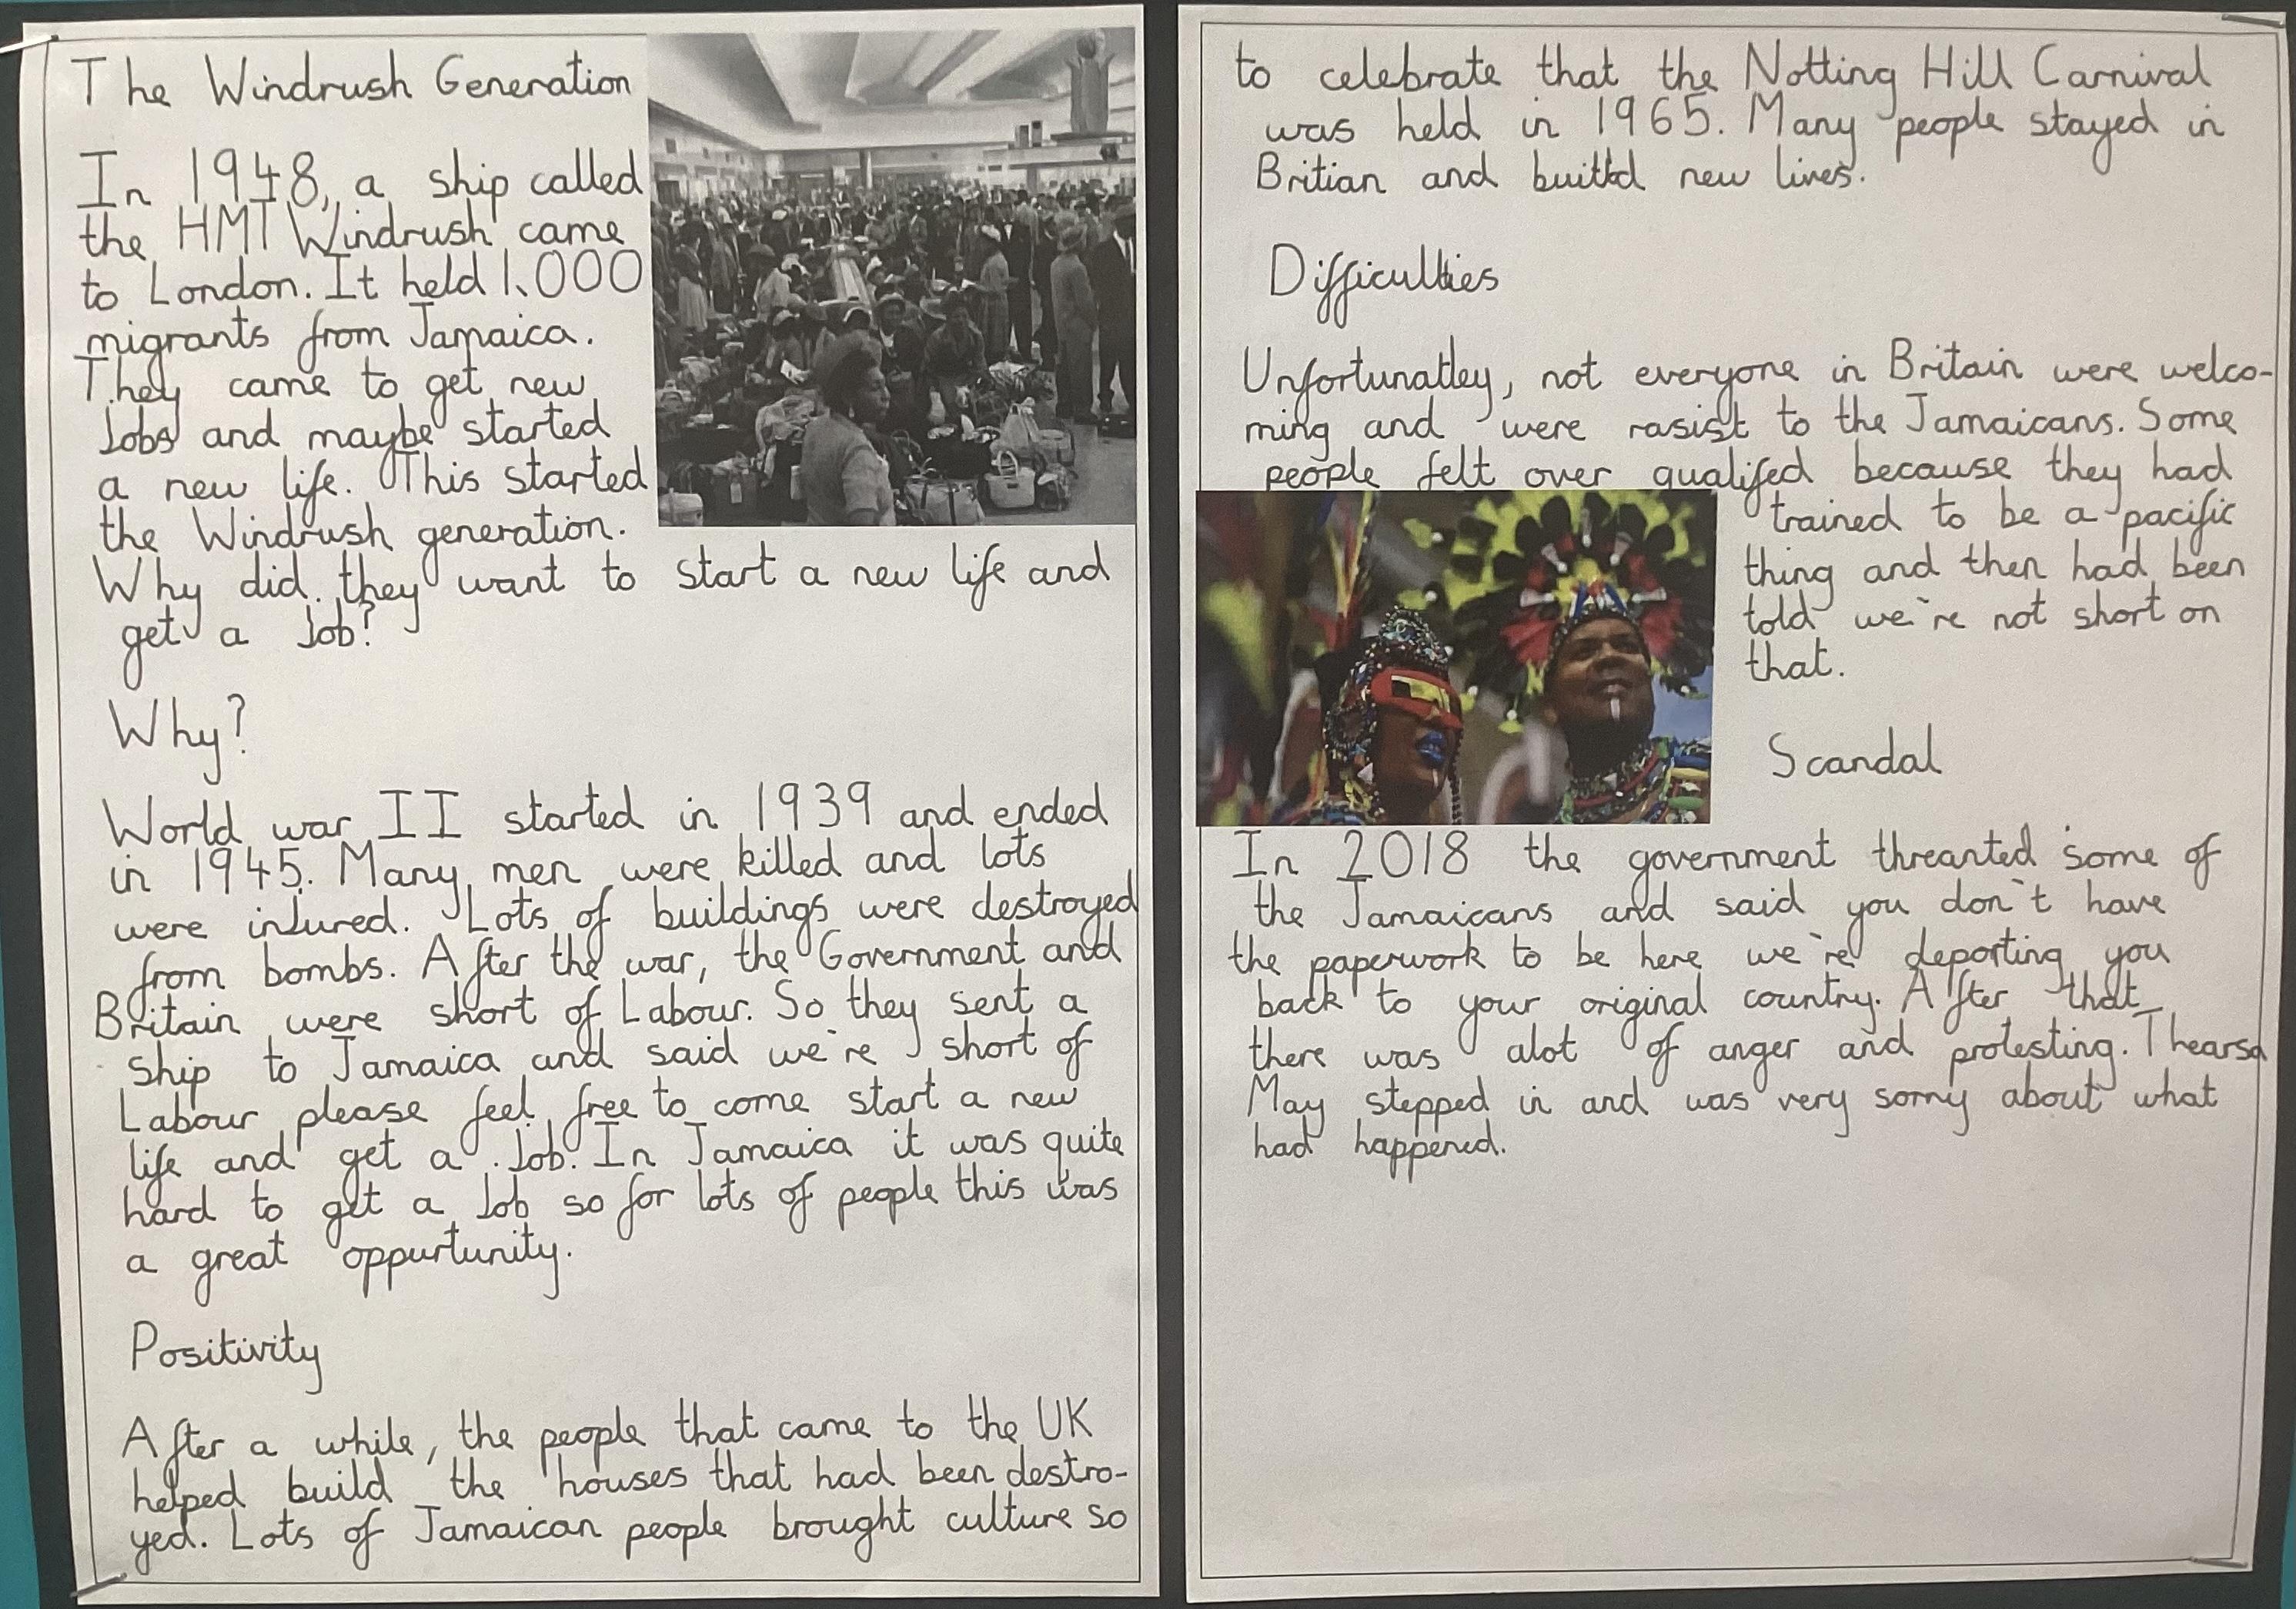 The Windrush Generation
In 1948, a ship called
the HMT Windrush came
to London. It held 1,000
migrants from Jamaica.
They came to get new
Jobs and maybe started
a new life. This started
the Windrush generation.
Why did they want to start a new life and
get a Job?
Why?
World war II started in 1939 and ended
in 1945. Many men were killed and lots
were inJured. Lots of buildings were destroyed
from bombs. After the war, the Government and
Britain were short of Labour. So they sent a
ship to Jamaica and said we're short of
Labour please feel free to come start a new
life and get a Job. In Jamaica it was quite
hard to get a Job so for lots of people this was
a great oppurtunity.
Positivity
After a while, the people that came to the UK
helped build the houses that had been destro-
yed. Lots of Jamaican people brought culture so
to celebrate that the Notting Hill Carnival
was held in 1965. Many people stayed in
Britian and new lives.
Difficulties
Unfortunatley, not everyone in Britain were welco-
ming and were rasist to the Jamaicans. Some
people felt over qualifed because they had
trained to be a pacific
thing and then had been
told we're not short on
that.
Scandal
In 2018 the government threanted some of
the Jamaicans and said you don't have
the paperwork to be here we're deporting you
back to your original country. After that
there was alot of anger and protesting. Thearsa
May stepped in and was very sorry about what
had happened.